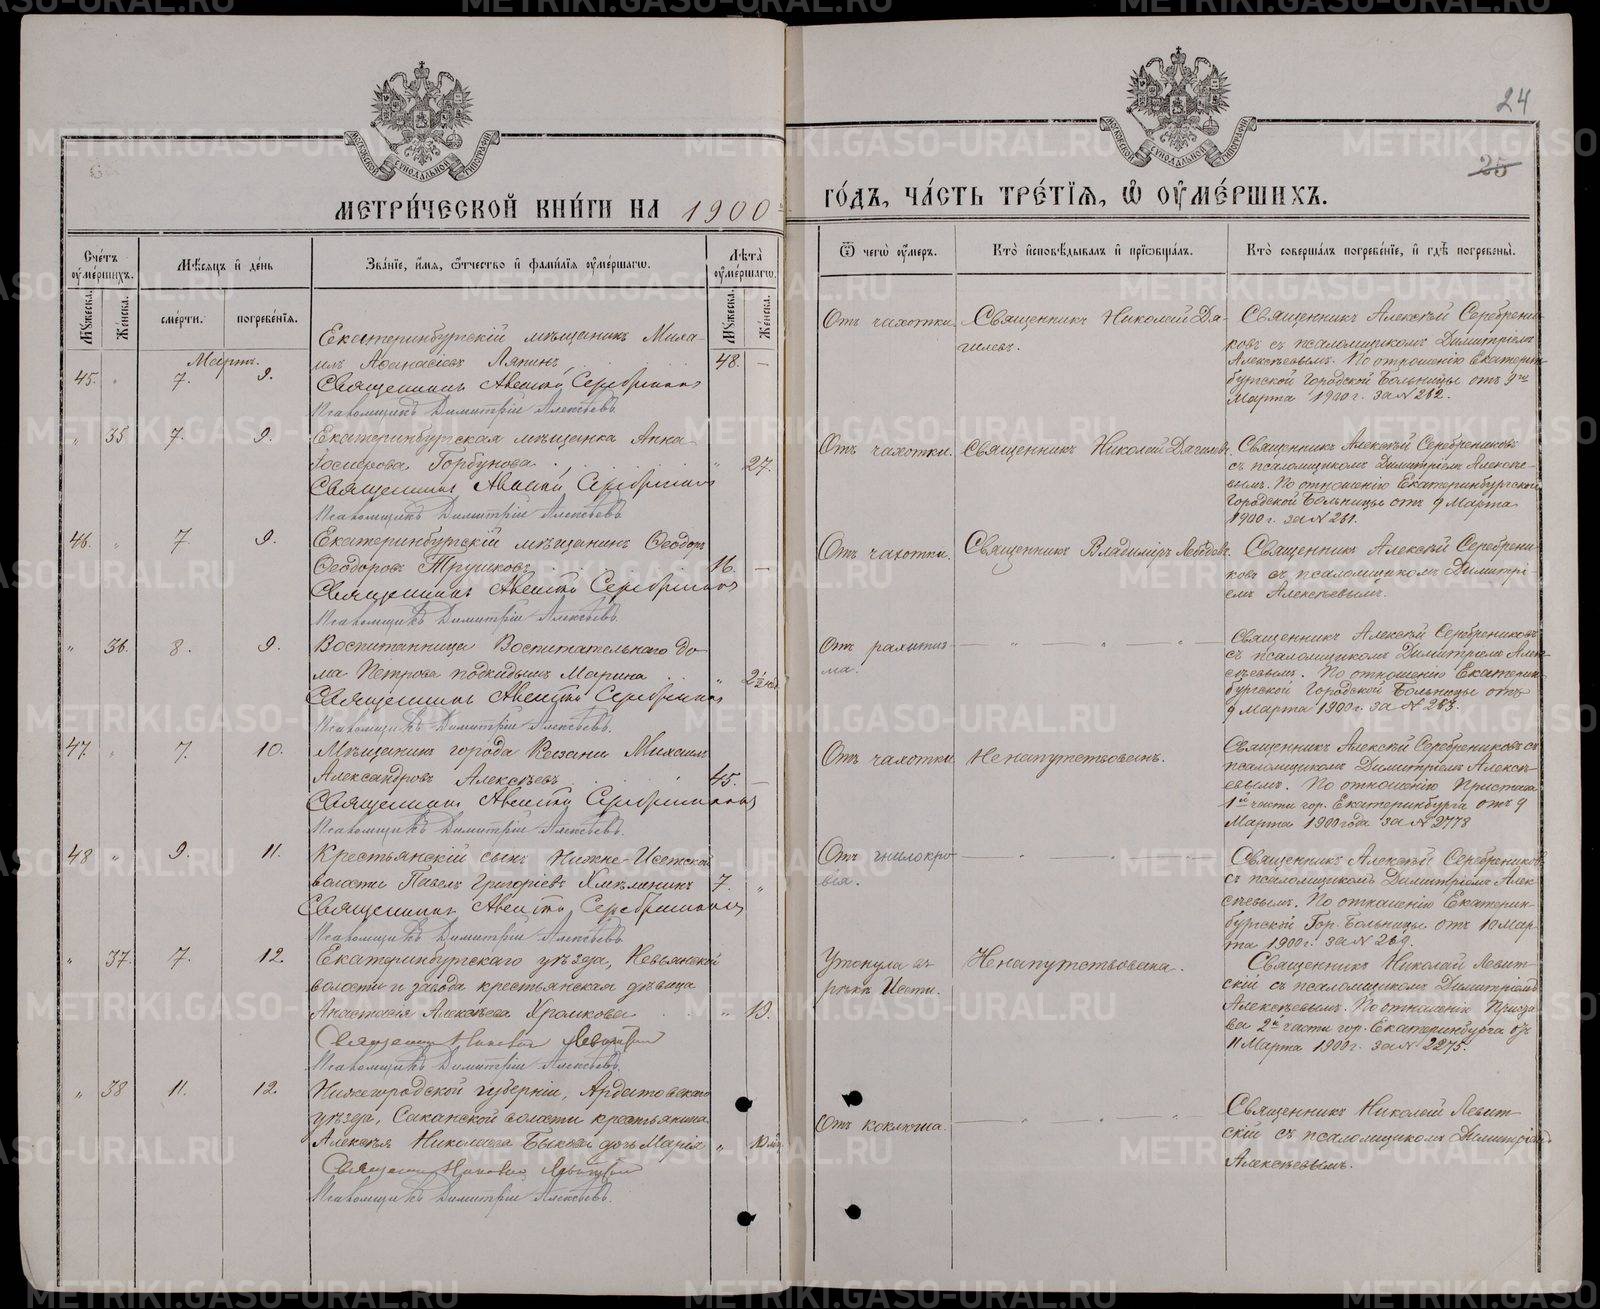 24
25
МЕТРИ́ЧЕСКОЙ КНИ́ГИ НА 1900 ГО́ДЪ, ЧА́СТЬ ТРЕ́ТІЯ, Ѡ ОУМЕ́РШИХЪ.
МОСКОВСКОЙ СѴНОДАЛЬНОЙ ТИПОГРАФІИ
МОСКОВСКОЙ СѴНОДАЛЬНОЙ ТИПОГРАФІИ
Сче́тъ оуме́ршихъ.
Мѣсѧцъ и де́нь
Зва́нїе, и́мѧ, ѻ́тчество и фами́лїѧ оуме́ршагѡ.
Лѣ́та оуме́ршагѡ.
Ѿ чегѡ̀ оу́меръ.
Кто̀ и҆сповѣ́дывалъ и҆ прїѡбща́лъ.
Кто̀ соверша́лъ погребе́нїе, и҆ гдѣ̀ погребены̀.
Мꙋ́жеска.
Же́нска.
сме́рти.
погребе́нїѧ.
Мꙋ́жеска.
Же́нска.
Мартъ.
45. " 7. 9.
Екатеринбургскій мѣщанинъ Миха-
илъ Аѳанасіевъ Ляпинъ 48. —
Священникъ Алексѣй Серебренниковъ
Псаломщикъ Димитрій Алексѣевъ.
Отъ чахотки.
Священникъ Николай Дя-
гилевъ.
Священникъ Алексѣй Серебрени-
ковъ съ псаломщикомъ Димитріемъ
Алексѣевымъ. По отношенію Екатерин-
бургской Городской Больницы отъ 9го
Марта 1900 г. за № 282.
" 35 7. 9.
Екатеринбургская мѣщанка Анна
Горбунова " 27.
Священникъ Алексѣй Серебренниковъ
Псаломщикъ Димитрій Алексѣевъ.
Отъ чахотки.
Священникъ Николай Дягилевъ.
Священникъ Алексѣй Серебрениковъ
съ псаломщикомъ Димитріемъ Алексѣе-
вымъ. По отношенію Екатеринбургской
Городской Больницы отъ 9 Марта
1900 г. за № 281.
46. " 7. 9.
Екатеринбургскій мѣщанинъ Ѳеодоръ
Ѳеодоровъ Трушковъ 16. —
Священникъ Алексѣй Серебренниковъ
Псаломщикъ Димитрій Алексѣевъ.
Отъ чахотки.
Священникъ Владиміръ
Священникъ Алексѣй Серебрени-
ковъ съ псаломщикомъ Димитрі-
емъ Алексѣевымъ.
" 36. 8. 9.
Воспитанница Воспитательнаго до-
ма Петрова подкидышъ Марина " 2½
Священникъ Алексѣй Серебренниковъ
Псаломщикъ Димитрій Алексѣевъ.
Отъ рахитиз-
ма.
— " — " — "
Священникъ Алексѣй Серебрениковъ
съ псаломщикомъ Димитріемъ Алек-
сѣевымъ. По отношенію Екатерин-
бургской Городской Больницы отъ
9 Марта 1900 г. за № 283.
47 " 7. 10.
Мѣщанинъ города Казани Михаилъ
Александровъ Алексѣевъ 45. —
Священникъ Алексѣй Серебренниковъ
Псаломщикъ Димитрій Алексѣевъ.
Отъ чахотки
Ненапутствованъ.
Священникъ Алексѣй Серебрениковъ съ
псаломщикомъ Димитріемъ Алексѣ-
евымъ. По отношенію Пристава
1й части гор. Екатеринбурга отъ 9
Марта 1900 года за № 2778
48 " 9. 11.
Крестьянскій сынъ Нижне-Исетской
волости Павелъ Григоріевъ Хмѣлинин 7. "
Священникъ Алексѣй Серебренниковъ
Псаломщикъ Димитрій Алексѣевъ.
Отъ гнилокро-
вія.
— " — " —
Священникъ Алексѣй Серебрениковъ
съ псаломщикомъ Димитріемъ Алек-
сѣевымъ. По отношенію Екатерин-
бургской Гор. Больницы отъ 10 Мар-
та 1900 г. за № 289.
" 37. 7. 12.
Екатеринбургскаго уѣзда, Невьянской
волости и завода крестьянская дѣвица
Анастасія Алексѣева Хромкова " 19.
Священникъ Николай Левитскій
Псаломщикъ Димитрій Алексѣевъ.
Утонула въ
рѣкѣ Исети.
Ненапутствована.
Священникъ Николай Левит-
скій съ псаломщикомъ Димитріемъ
Алексѣевымъ. По отношенію Приста-
ва 2й части гор. Екатеринбурга отъ
11 Марта 1900 г. за № 2275.
" 38 11. 12.
Нижегородской губерніи, Ардатовскаго
уѣзда, Саканской волости крестьянина
Алексѣя Николаева Быкова дочь Марія " 10 м.
Священникъ Николай Левитскій
Псаломщикъ Димитрій Алексѣевъ.
Отъ коклюша.
— " — " — "
Священникъ Николай Левит-
скій съ псаломщикомъ Димитріемъ
Алексѣевымъ.
METRIKI.GASO-URAL.RU